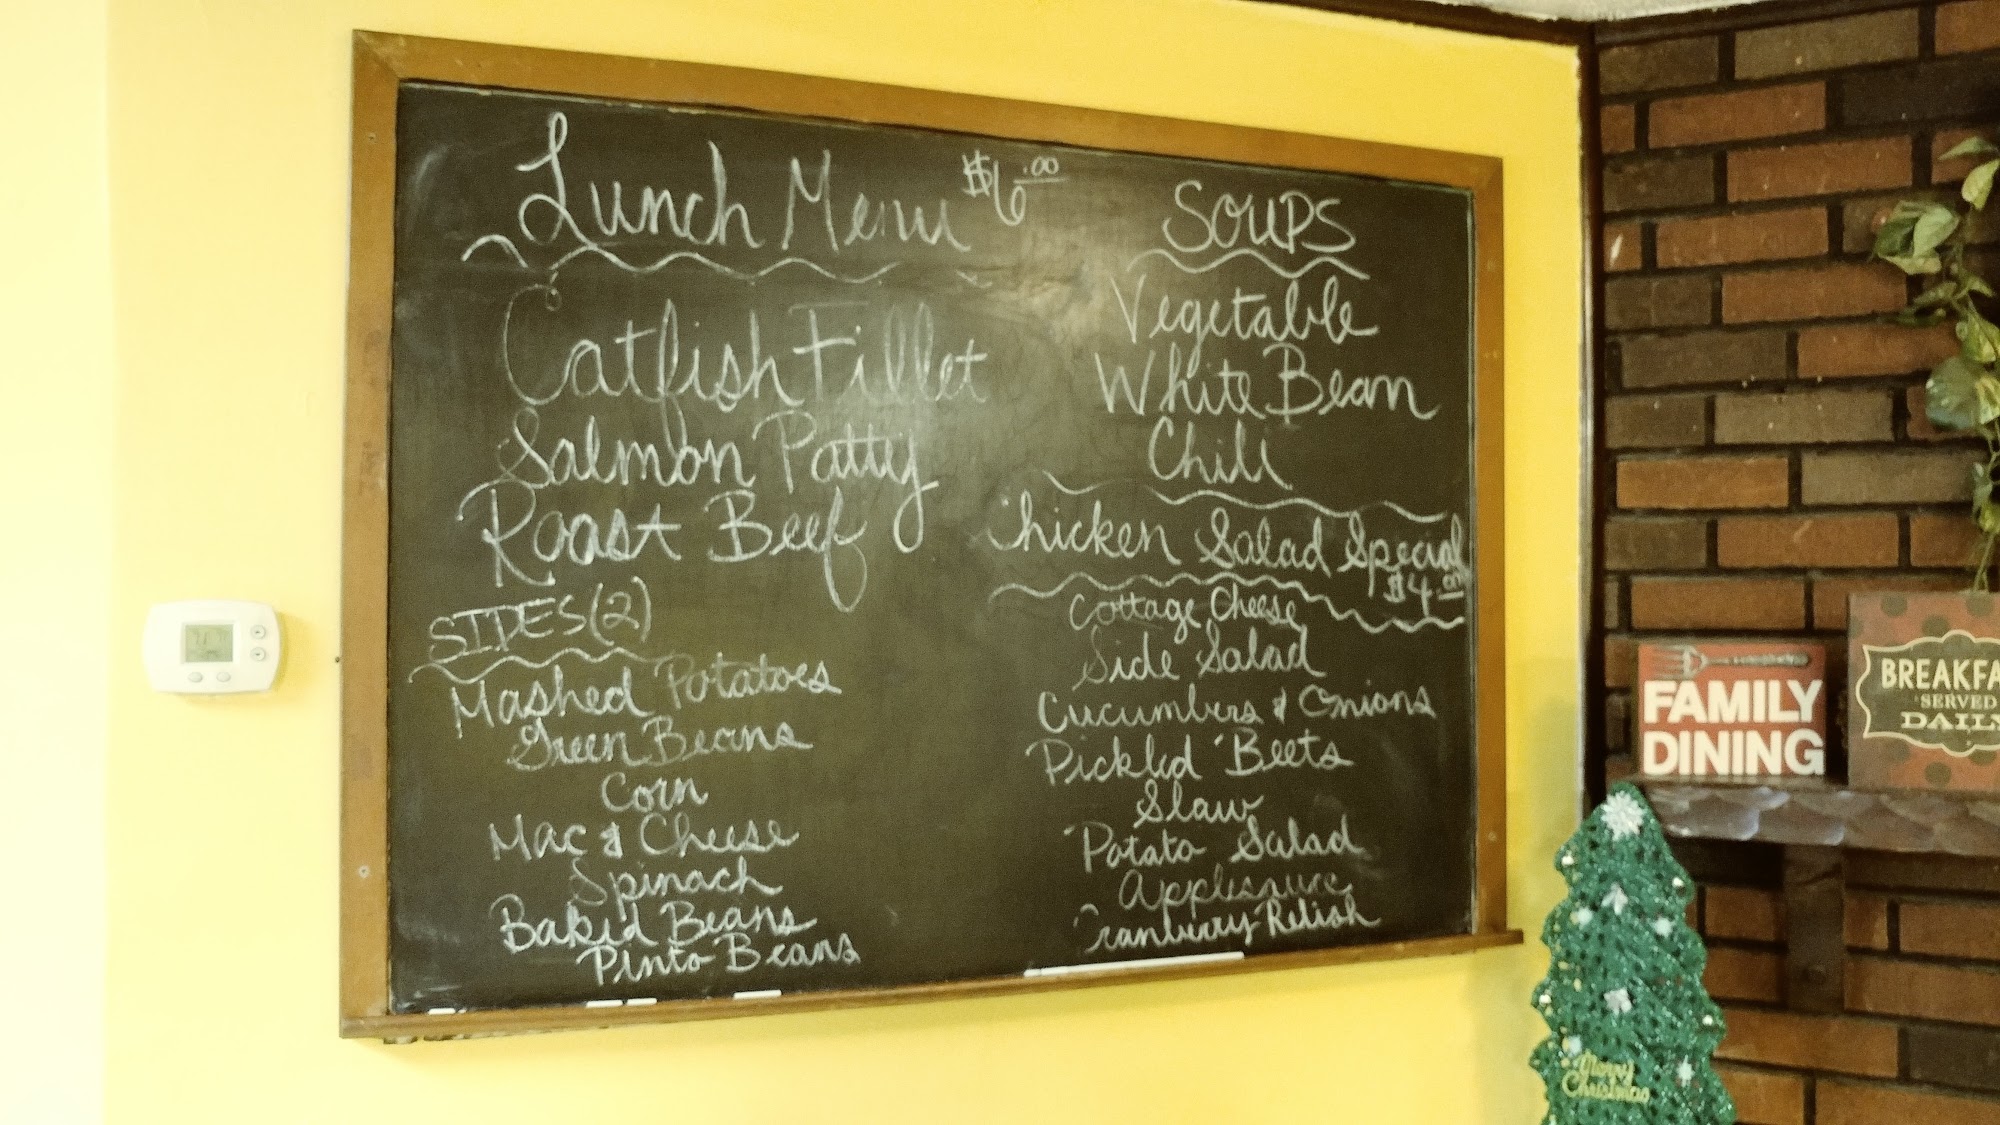 Lunch Menu $6.00
Catfish Fillet
Salmon Patty
Roast Beef
SIDES (2)
Mashed Potatoes
Green Beans
Corn
Mac & Cheese
Spinach
Baked Beans
Pinto Beans
SOUPS
Vegetable
White Bean
Chili
Chicken Salad Special
$4.00
Cottage Cheese
Side Salad
Cucumbers & Onions
Pickled Beets
Slaw
Potato Salad
Applesauce
Cranberry Relish
FAMILY
DINING
BREAKFA
SERVED
DAILY
Merry
Christmas